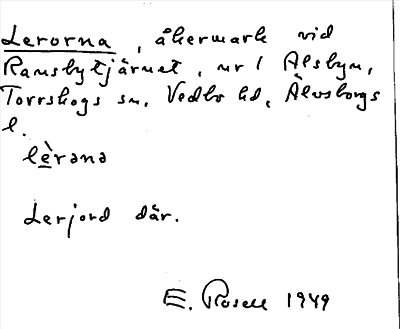 Lerorna, åkermark vid
Ramsbytjärnet, nr 1 Alsbyn,
Torrskogs sn. Vedbo hd, Älvsborgs
l.
lèrəna
Lerjord där.
E. Rosell 1949